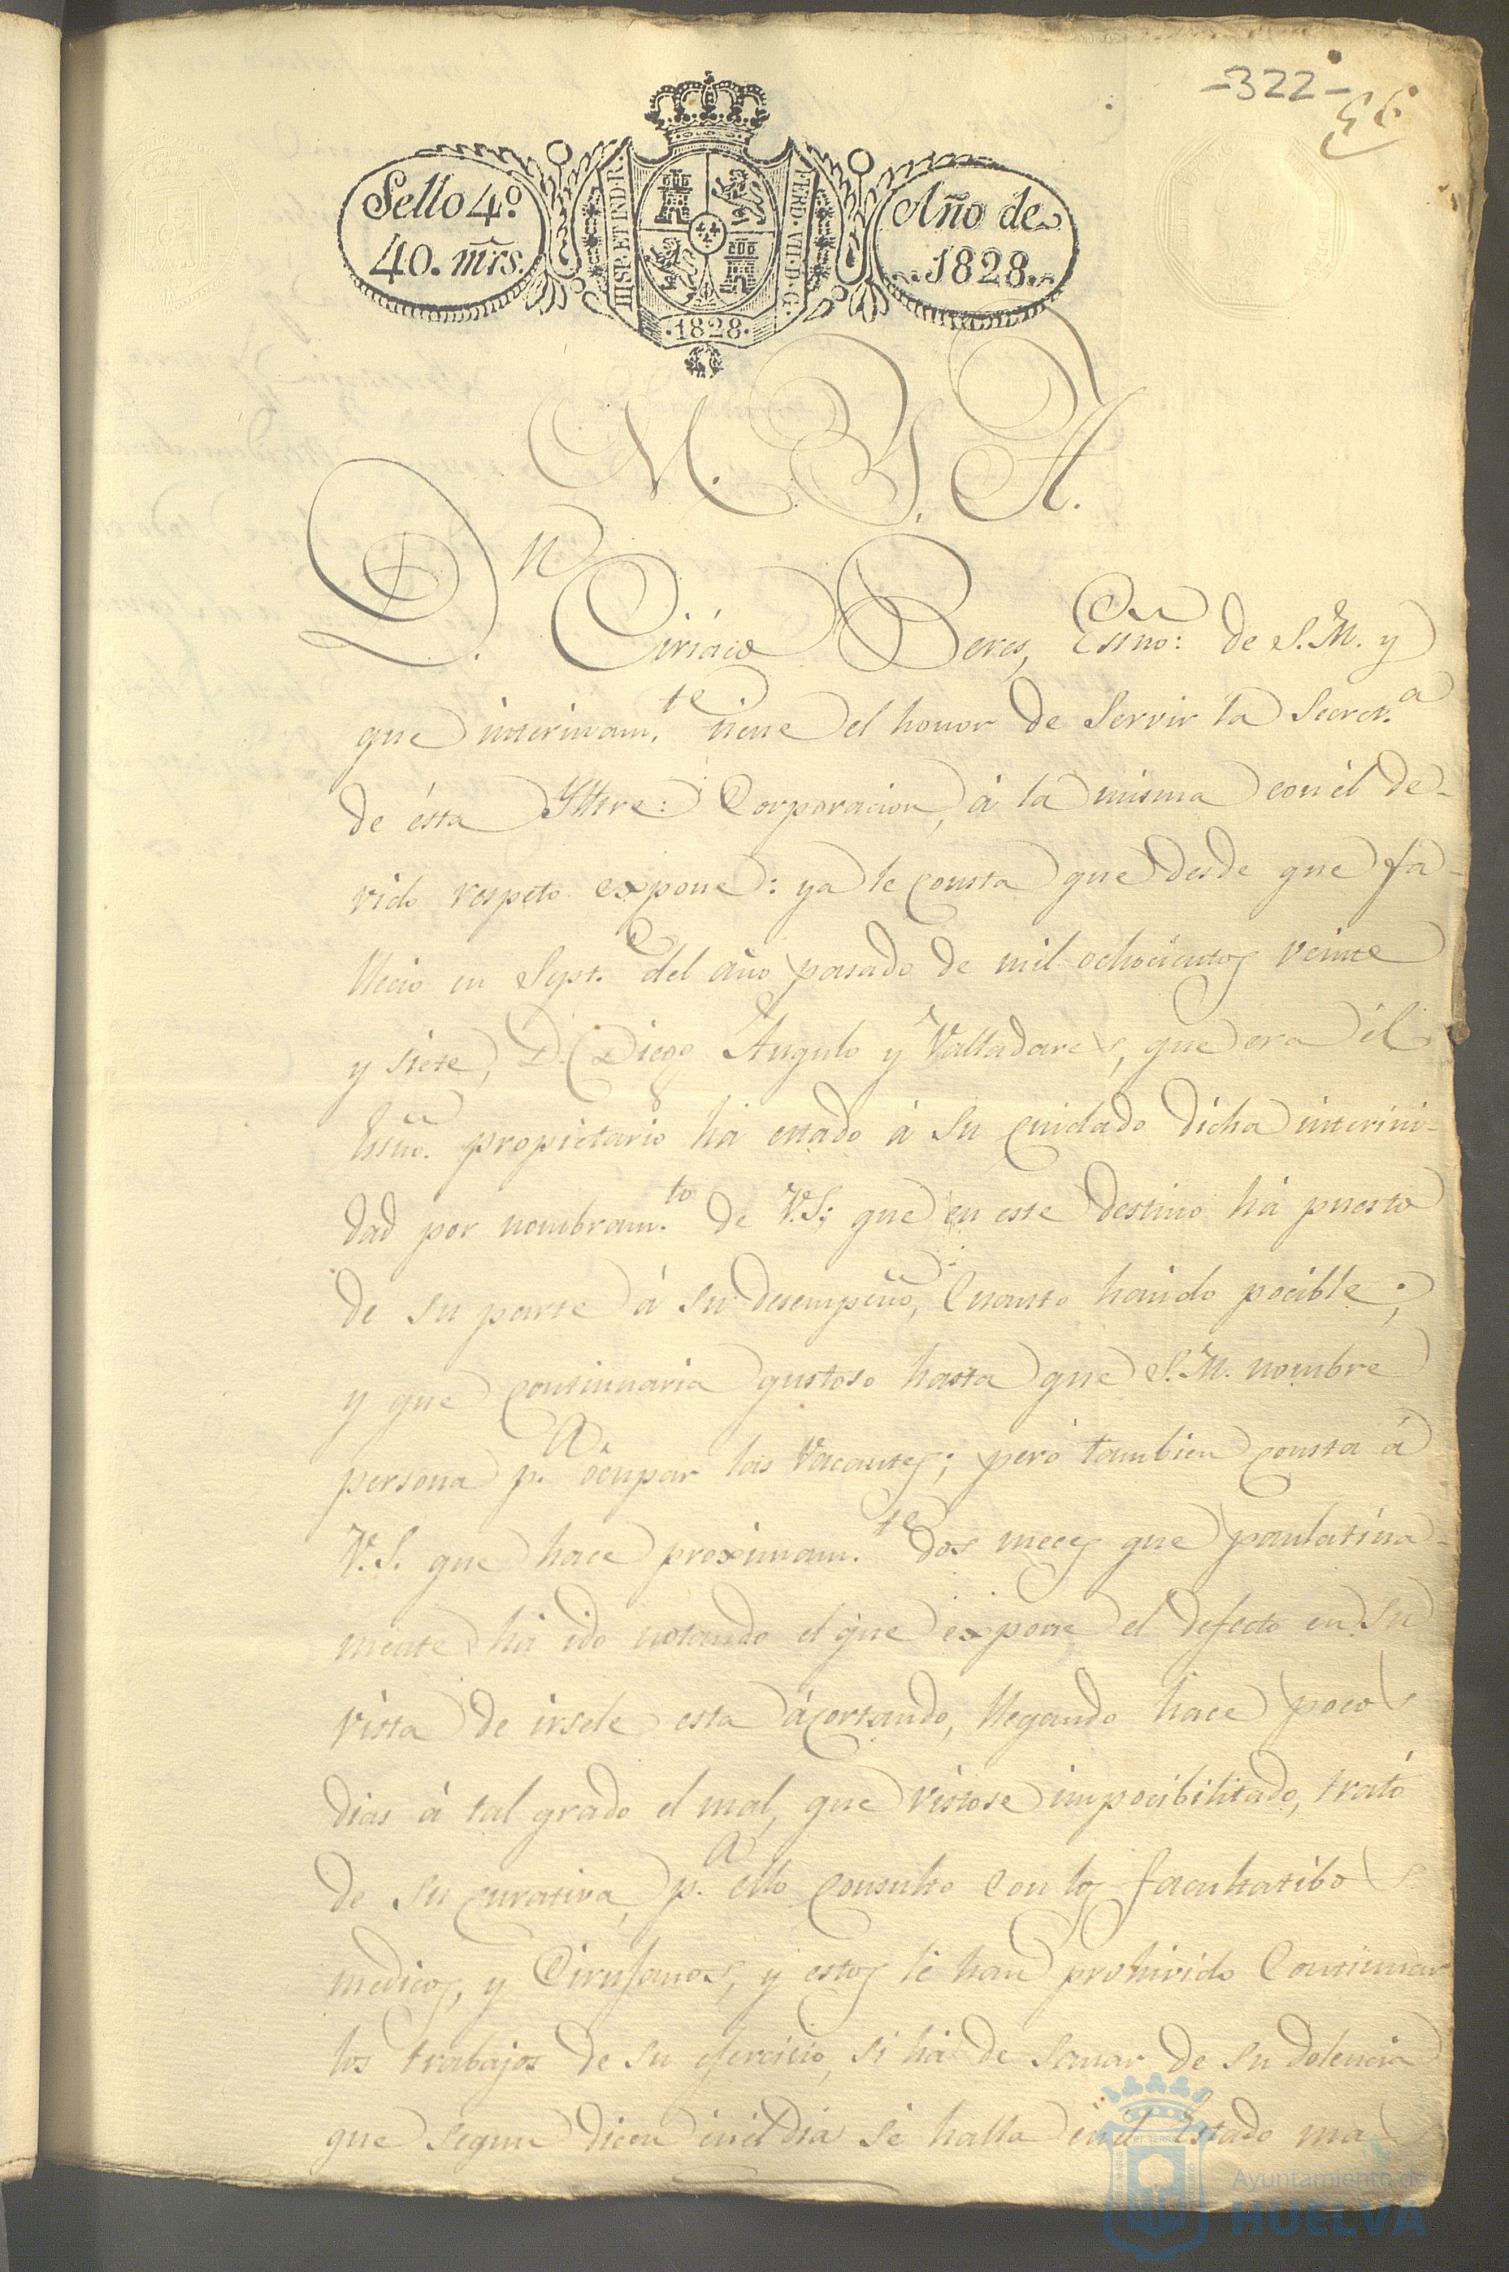 -322-
Sello 4.º
40. mrs.
HISP. ET IND. R.
FERD. VII. D. G.
·1828·
Año de
1828.
M. Y. A.
D.n Ciriáco Beres, Essno: de S.M. y
que interinam.te tiene el honor de Servir la Secret.a
de ésta Yltre: Corporacion, á la misma con él de-
vido respeto expone: ya le consta que desde que fa-
llecio en Sept.e del año pasado de mil ochocientos veinte
y siete, D. Diego Angulo y Valladares, que era él
Essno. propietario há estado á su cuidado dicha interini-
dad por nombram.to de V.S; que en este destino há puesto
de su parte á su desempeño, Cuanto haido pocible;
y que continuaria gustoso hasta que S.M. nombre
persona p.a ócupar las Vacantes; pero tambien consta á
V.S. que hace proximam.te dos meces que paulatina-
mente há ido notando el que expone el defecto en su
vista de irsele esta ácortando, llegando hace pocos
dias á tal grado el mal, que vistose impocibilitado, trató
de su curativa, p.a ello consulto con los facultatibos
medicos, y Cirujanos, y estos le han prohivido Continuar
los trabajos de su ejercicio, si há de sanar de su dolencia
que segun dicen en él dia se halla en él Estado ma
Ayuntamiento de
HUELVA